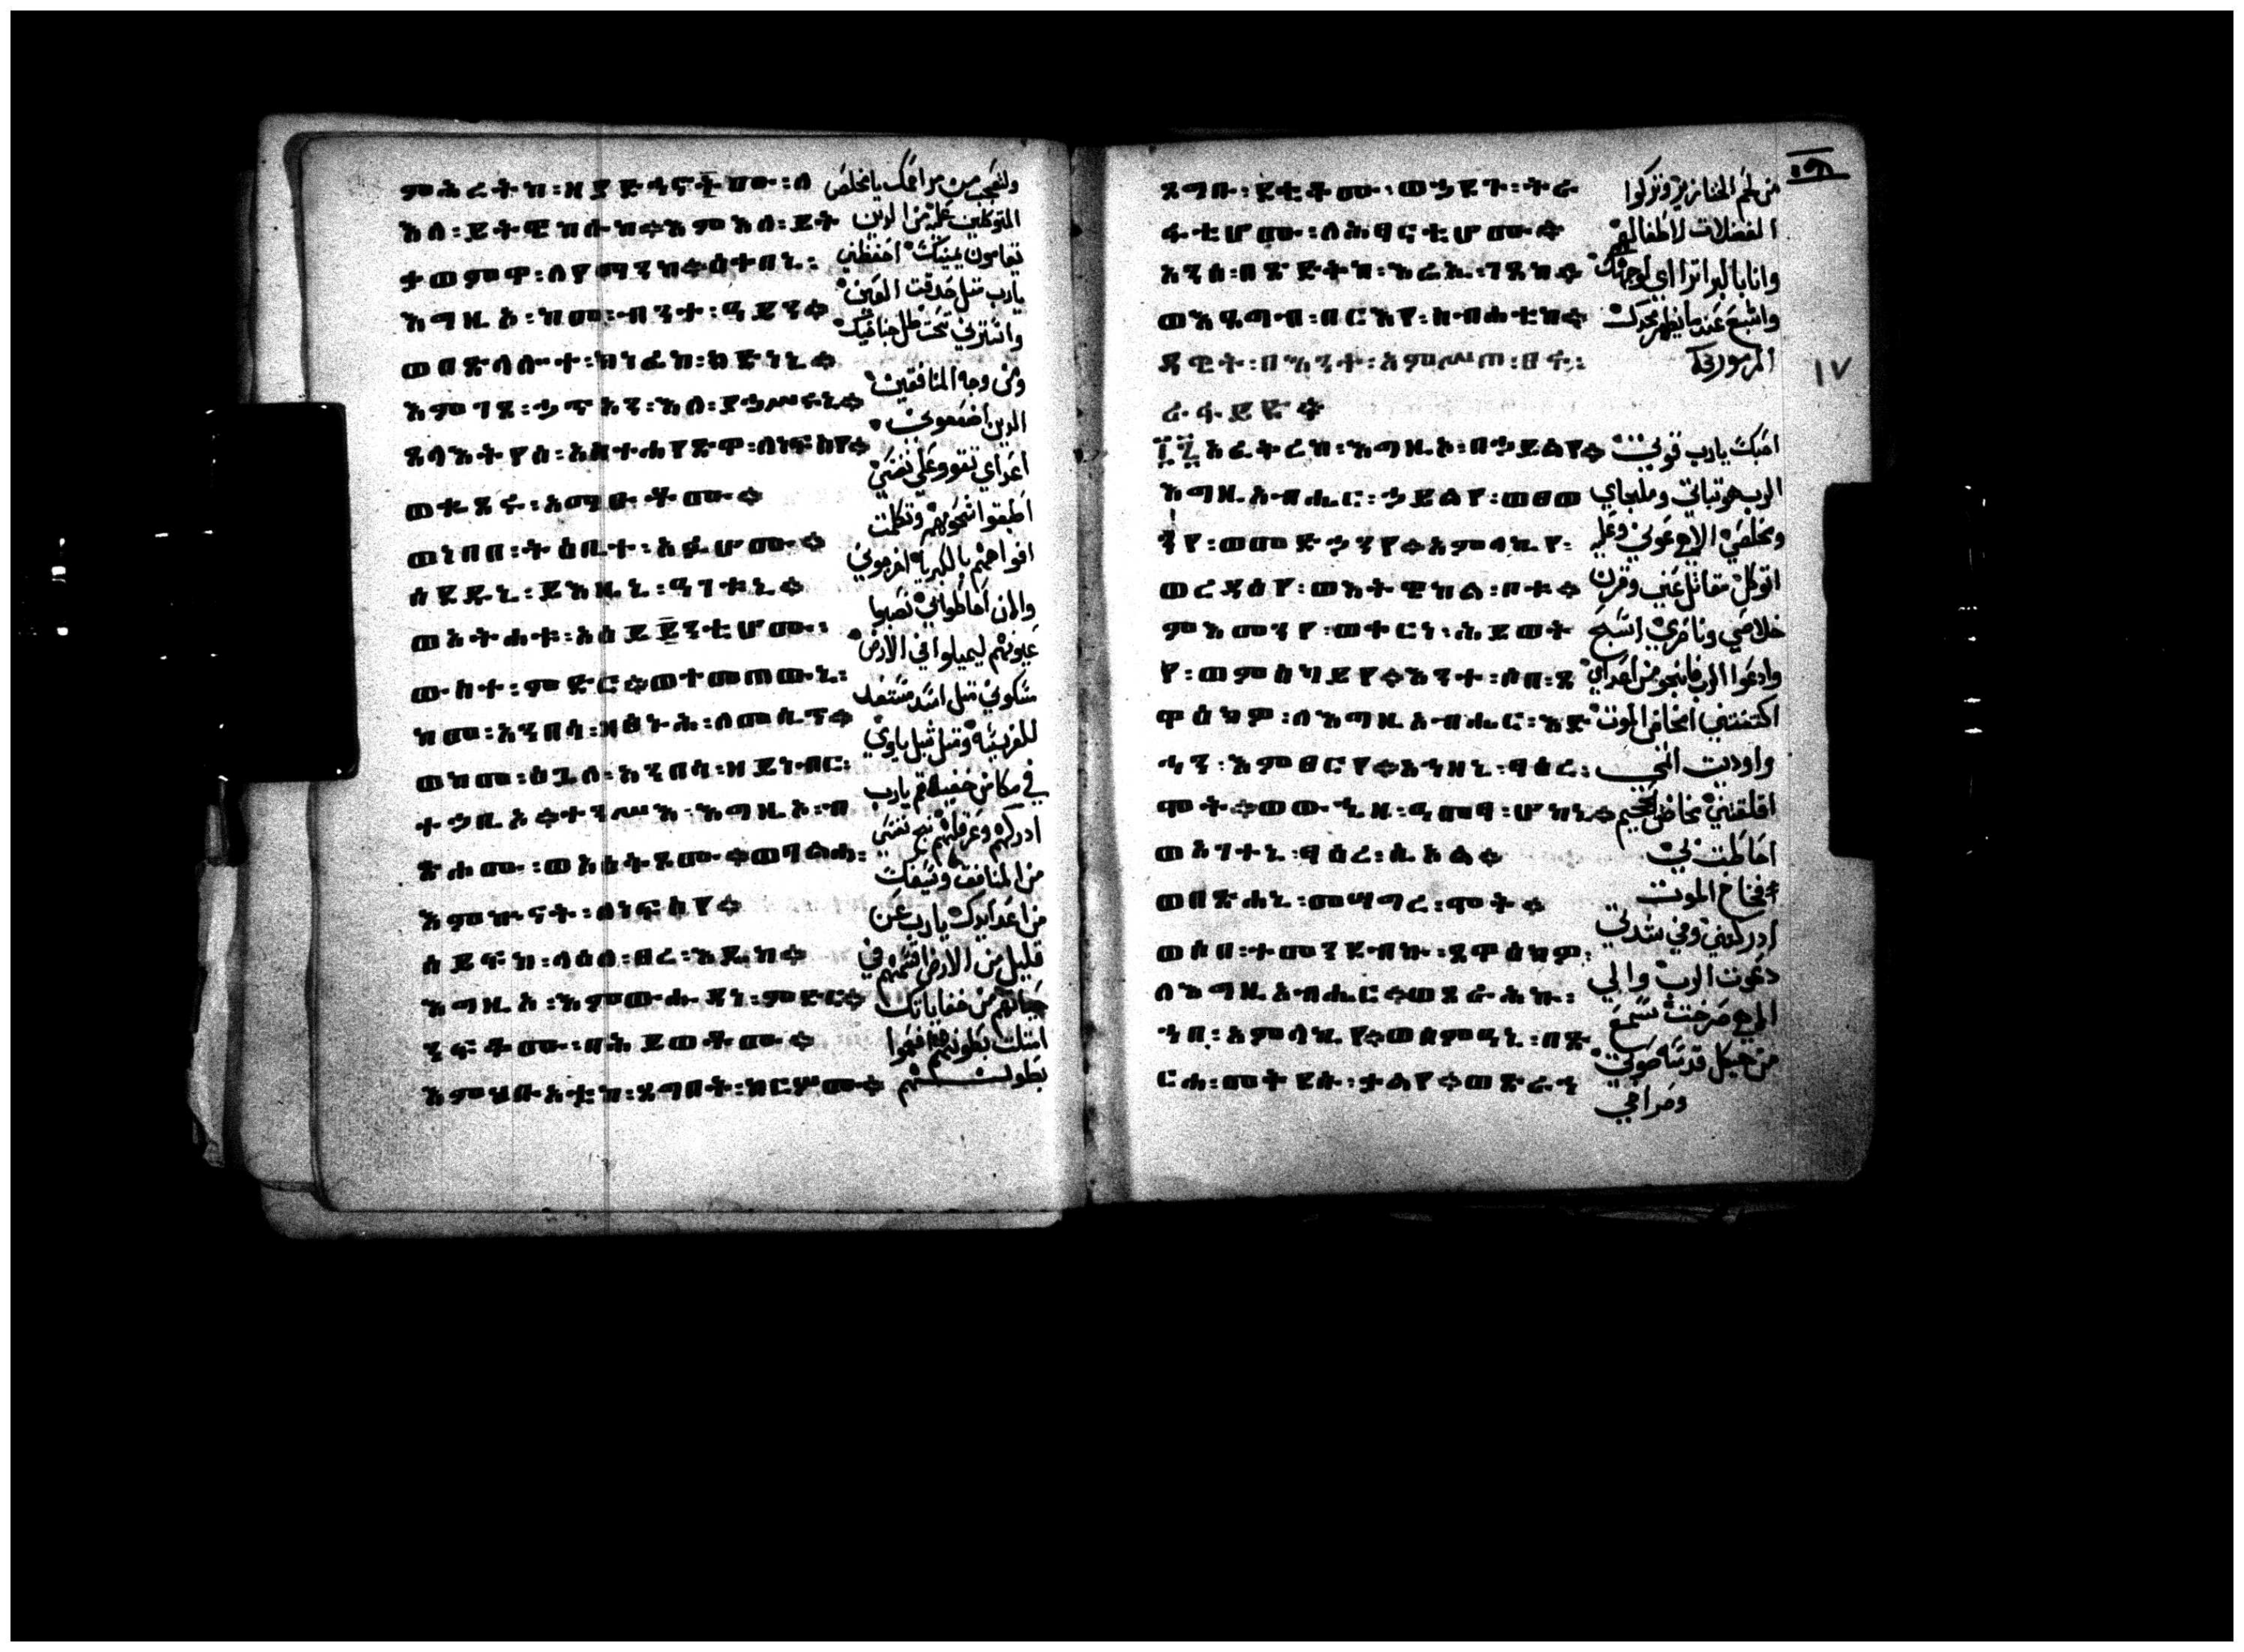 ምሕረትከ፡ዘያድኅኖሙ፡ለ ولنعجب من مراحمك يا مخلص
እለ፡ይትዌከሉከ።እምእለ፡ይት المتوكلين عليك من الدين
ቀወምዋ፡ለየማንከ።ዕቀበኒ፡ يقاومون يمينك احفظني
እግዚኦ፡ከመ፡ብንተ፡ዓይን። يارب متل حدقت العين
ወበጽላሎተ፡ክነፊከ፡ክድነኒ። واسترني تحت ظل جناحيك
እምገጸ፡ኃጥኣን፡እለ፡ያኀሥሩኒ። ومن وجه المنافقين
ጸላእትየሰ፡አስተሐየጽዋ፡ለነፍስየ። الدين
ወቈጸሩ፡አማዑቶሙ። اعداي نفسي
ወነበበ፡ትዕቢተ፡አፉሆሙ። اطبقوا شحومهم وتكلمت
ሰደዱኒ፡ይእዜኒ፡ዓገቱኒ። افواههم بالكبريا
ወአትሐቱ፡አዕይንቲሆሙ፡ والان احاطوا بي نصبوا
ውስተ፡ምድር።ወተመጠውኒ፡ عيونهم ليميلوا في الارض
ከመ፡አንበሳ፡ዘፅኑሕ፡ለመሲጥ። متل اسد مستعد
ወከመ፡ዕጓለ፡አንበሳ፡ዘይነብር፡ للفريسه
ተኃቢኦ።ተንሥእ፡እግዚኦ፡ብ في مكان خفية قم يارب
ጽሐሙ፡ወአዕቅጾሙ።ወባልሐ፡ ادركهم وعرقلهم نج نفسي
እምኵናት፡ለነፍስየ። من المنافق وسيفك
ሰይፍከ፡ላዕለ፡ፀረ፡እዴከ። من اعدا يدك يارب عن
እግዚኦ፡እምውሑዳነ፡ምድር። قليل من الارض اقسمهم في
ንፍቆሙ፡በሕይወቶሙ። حياتهم من خفاياتك
እምኅቡአቲከ፡ጸግበት፡ከርሦሙ። امتلت بطونهم
بطونهم
ጸግቡ፡ደቂቆሙ፡ወኃደጉ፡ትራ من لحم الخنازير وتركوا
ፋቲሆሙ፡ለሕፃናቲሆሙ። الفضلات لاطفالهم
አንሰ፡በጽድቅከ፡እሬኢ፡ገጸከ። وانا بالبر اترااي لوجهك
ወእጸግብ፡በርእየ፡ስብሐቲከ። واشبع عند ما يظهر مجدك
ዳዊት፡በማኅተ፡እምሥጠ፡ المزمور
፲፯ አፈቅረከ፡እግዚኦ፡በኃይልየ። احبك يارب قوتي
እግዚአብሔር፡ኃይልየ፡ወፀወ الرب هو تباتي وملجاي
ንየ፡ወመድኃንየ።አምላኪየ፡ ومخلصي الاهي عوني وعليه
ወረዳእየ፡ወእትዌከል፡ቦቱ። اتوكل مقاتل عني وقرن
ምእመንየ፡ወቀርነ፡ሕይወት خلاصي وناصري اسبح
የ፡ወምስካይየ።እንተ፡ሰበ፡ጸ وادعوا الرب فانجو من اعداي
ዋዕክዎ፡ለእግዚአብሔር፡እድ اكتنفتني امخاض الموت
ኅን፡እምፀርየ።አኀዘኒ፡ፃዕረ፡ واوديت
ሞት።ወውኂዘ፡ዓመፃ፡ሆከኒ። اقلقتني مخاض الجحيم
ወአገተኒ፡ፃዕረ፡ሲኦል። احاطت بي
ወበጽሐኒ፡መሣግረ፡ሞት። فخاخ الموت
ወሶበ፡ተመንደብኩ፡ጸዋዕክዎ፡ ادركتني وفي شدتي
ለእግዚአብሔር።ወጸራሕኩ፡ دعوت الرب والي
ኀበ፡አምላኪየ።ወሰምዓኒ፡በጽ الاهي صرخت سمع
ርሐ፡መቅደሱ፡ቃልየ።ወጽራኅ من هيكل قدسه صوتي
وصراخي